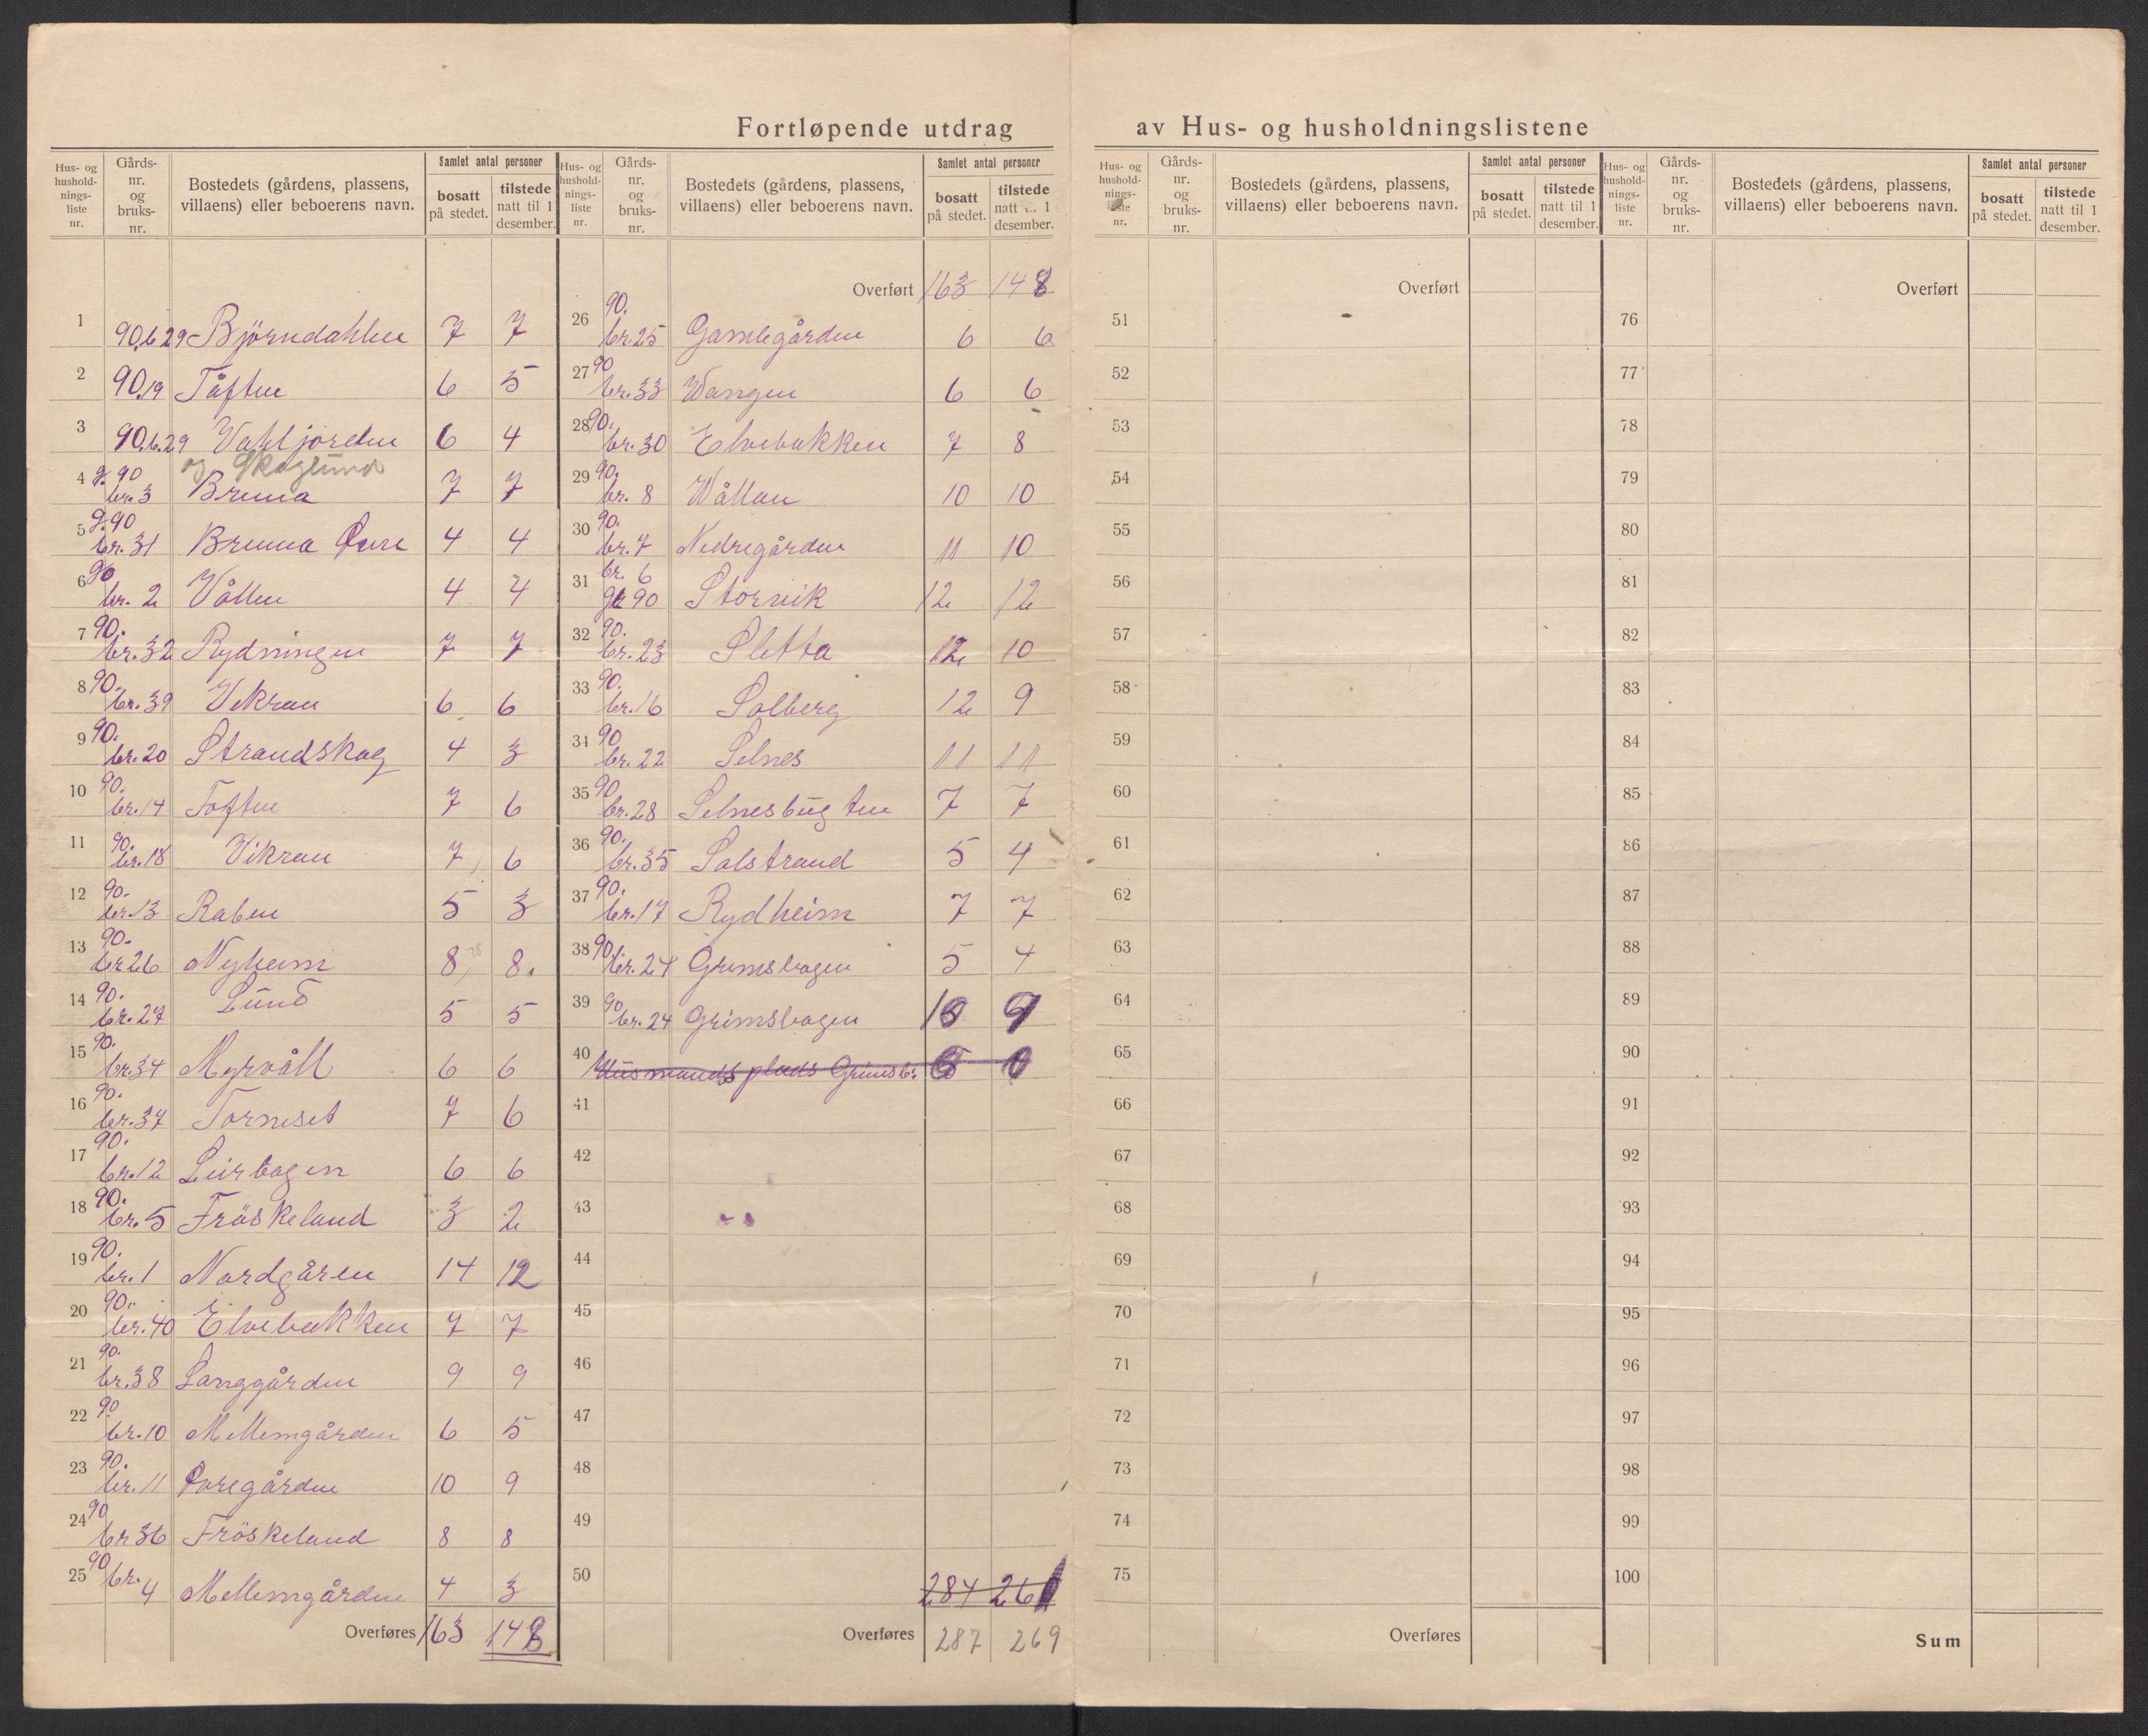 Fortløpende utdrag av Hus- og husholdningslistene
Hus- og hushold-nings-liste nr. Gårds-nr. og bruks-nr. Bostedets (gårdens, plassens, villaens) eller beboerens navn. Samlet antal personer bosatt på stedet. tilstede natt til 1 desember.
1 90,b29 Björndahlen 7 7
2 90,19 Tåften 6 5
3 90.b.29 Vahljorden 6 4
og Skoglund
4 g. 90 br. 3 Brenna 7 7
5 g. 90 br. 31 Brenna Övre 4 4
6 90 br. 2 Vållen 4 4
7 90. br. 32 Rydningen 7 7
8 90. br. 39 Vikran 6 6
9 90. br. 20 Strandskog 4 3
10 90. br. 14 Toften 7 6
11 90. br. 18 Vikran 7 6
12 90. br. 13 Raben 5 3
13 90. br 26 Nyheim 8 8
14 90. br. 27 Lund 5 5
15 90. br. 34 Myrvåll 6 6
16 90. br. 37 Tormset 7 6
17 90. br. 12 Leirbogen 6 6
18 90. br. 5 Fröskeland 3 2
19 90. br. 1 Nordgåren 14 12
20 90. br. 40 Elvebakken 7 7
21 90. br. 38 Langgården 9 9
22 90 br. 10 Mellemgården 6 5
23 90. br. 11 Övregården 10 9
24 90 br 36 Fröskeland 8 8
25 90 br. 4 Mellemgården 4 3
Overføres 163 148
Hus- og hushold-nings-liste nr. Gårds-nr. og bruks-nr. Bostedets (gårdens, plassens, villaens) eller beboerens navn. Samlet antal personer bosatt på stedet. tilstede natt til 1 desember.
Overført 163 148
26 90. br. 25 Gamlegården 6 6
27 90 br. 33 Wangen 6 6
28 90. br. 30 Elvebakken 7 8
29 90. br. 8 Wållan 10 10
30 90. br. 7 Nedregården 11 10
31 br. 6 gr 90 Storvik 12 12
32 90. br. 23 Sletta 12 10
33 90. br. 16 Solberg 12 9
34 90 br. 22 Selnes 11 11
35 90 br. 28 Selnesbugten 7 7
36 90. br. 35 Solstrand 5 4
37 90. br. 17 Rydheim 7 7
38 90. br. 24 Grimsbogen 5 4
39 90 br. 24 Grimsbogen 9
40 Husmandsplads Grimsb.
41
42
43
44
45
46
47
48
49
50
284 26
Overføres 287 269
Hus- og hushold-nings-liste nr. Gårds-nr. og bruks-nr. Bostedets (gårdens, plassens, villaens) eller beboerens navn. Samlet antal personer bosatt på stedet. tilstede natt til 1 desember.
Overført
51
52
53
54
55
56
57
58
59
60
61
62
63
64
65
66
67
68
69
70
71
72
73
74
75
Overføres
Hus- og hushold-nings-liste nr. Gårds-nr. og bruks-nr. Bostedets (gårdens, plassens, villaens) eller beboerens navn. Samlet antal personer bosatt på stedet. tilstede natt til 1 desember.
Overført
76
77
78
79
80
81
82
83
84
85
86
87
88
89
90
91
92
93
94
95
96
97
98
99
100
Sum